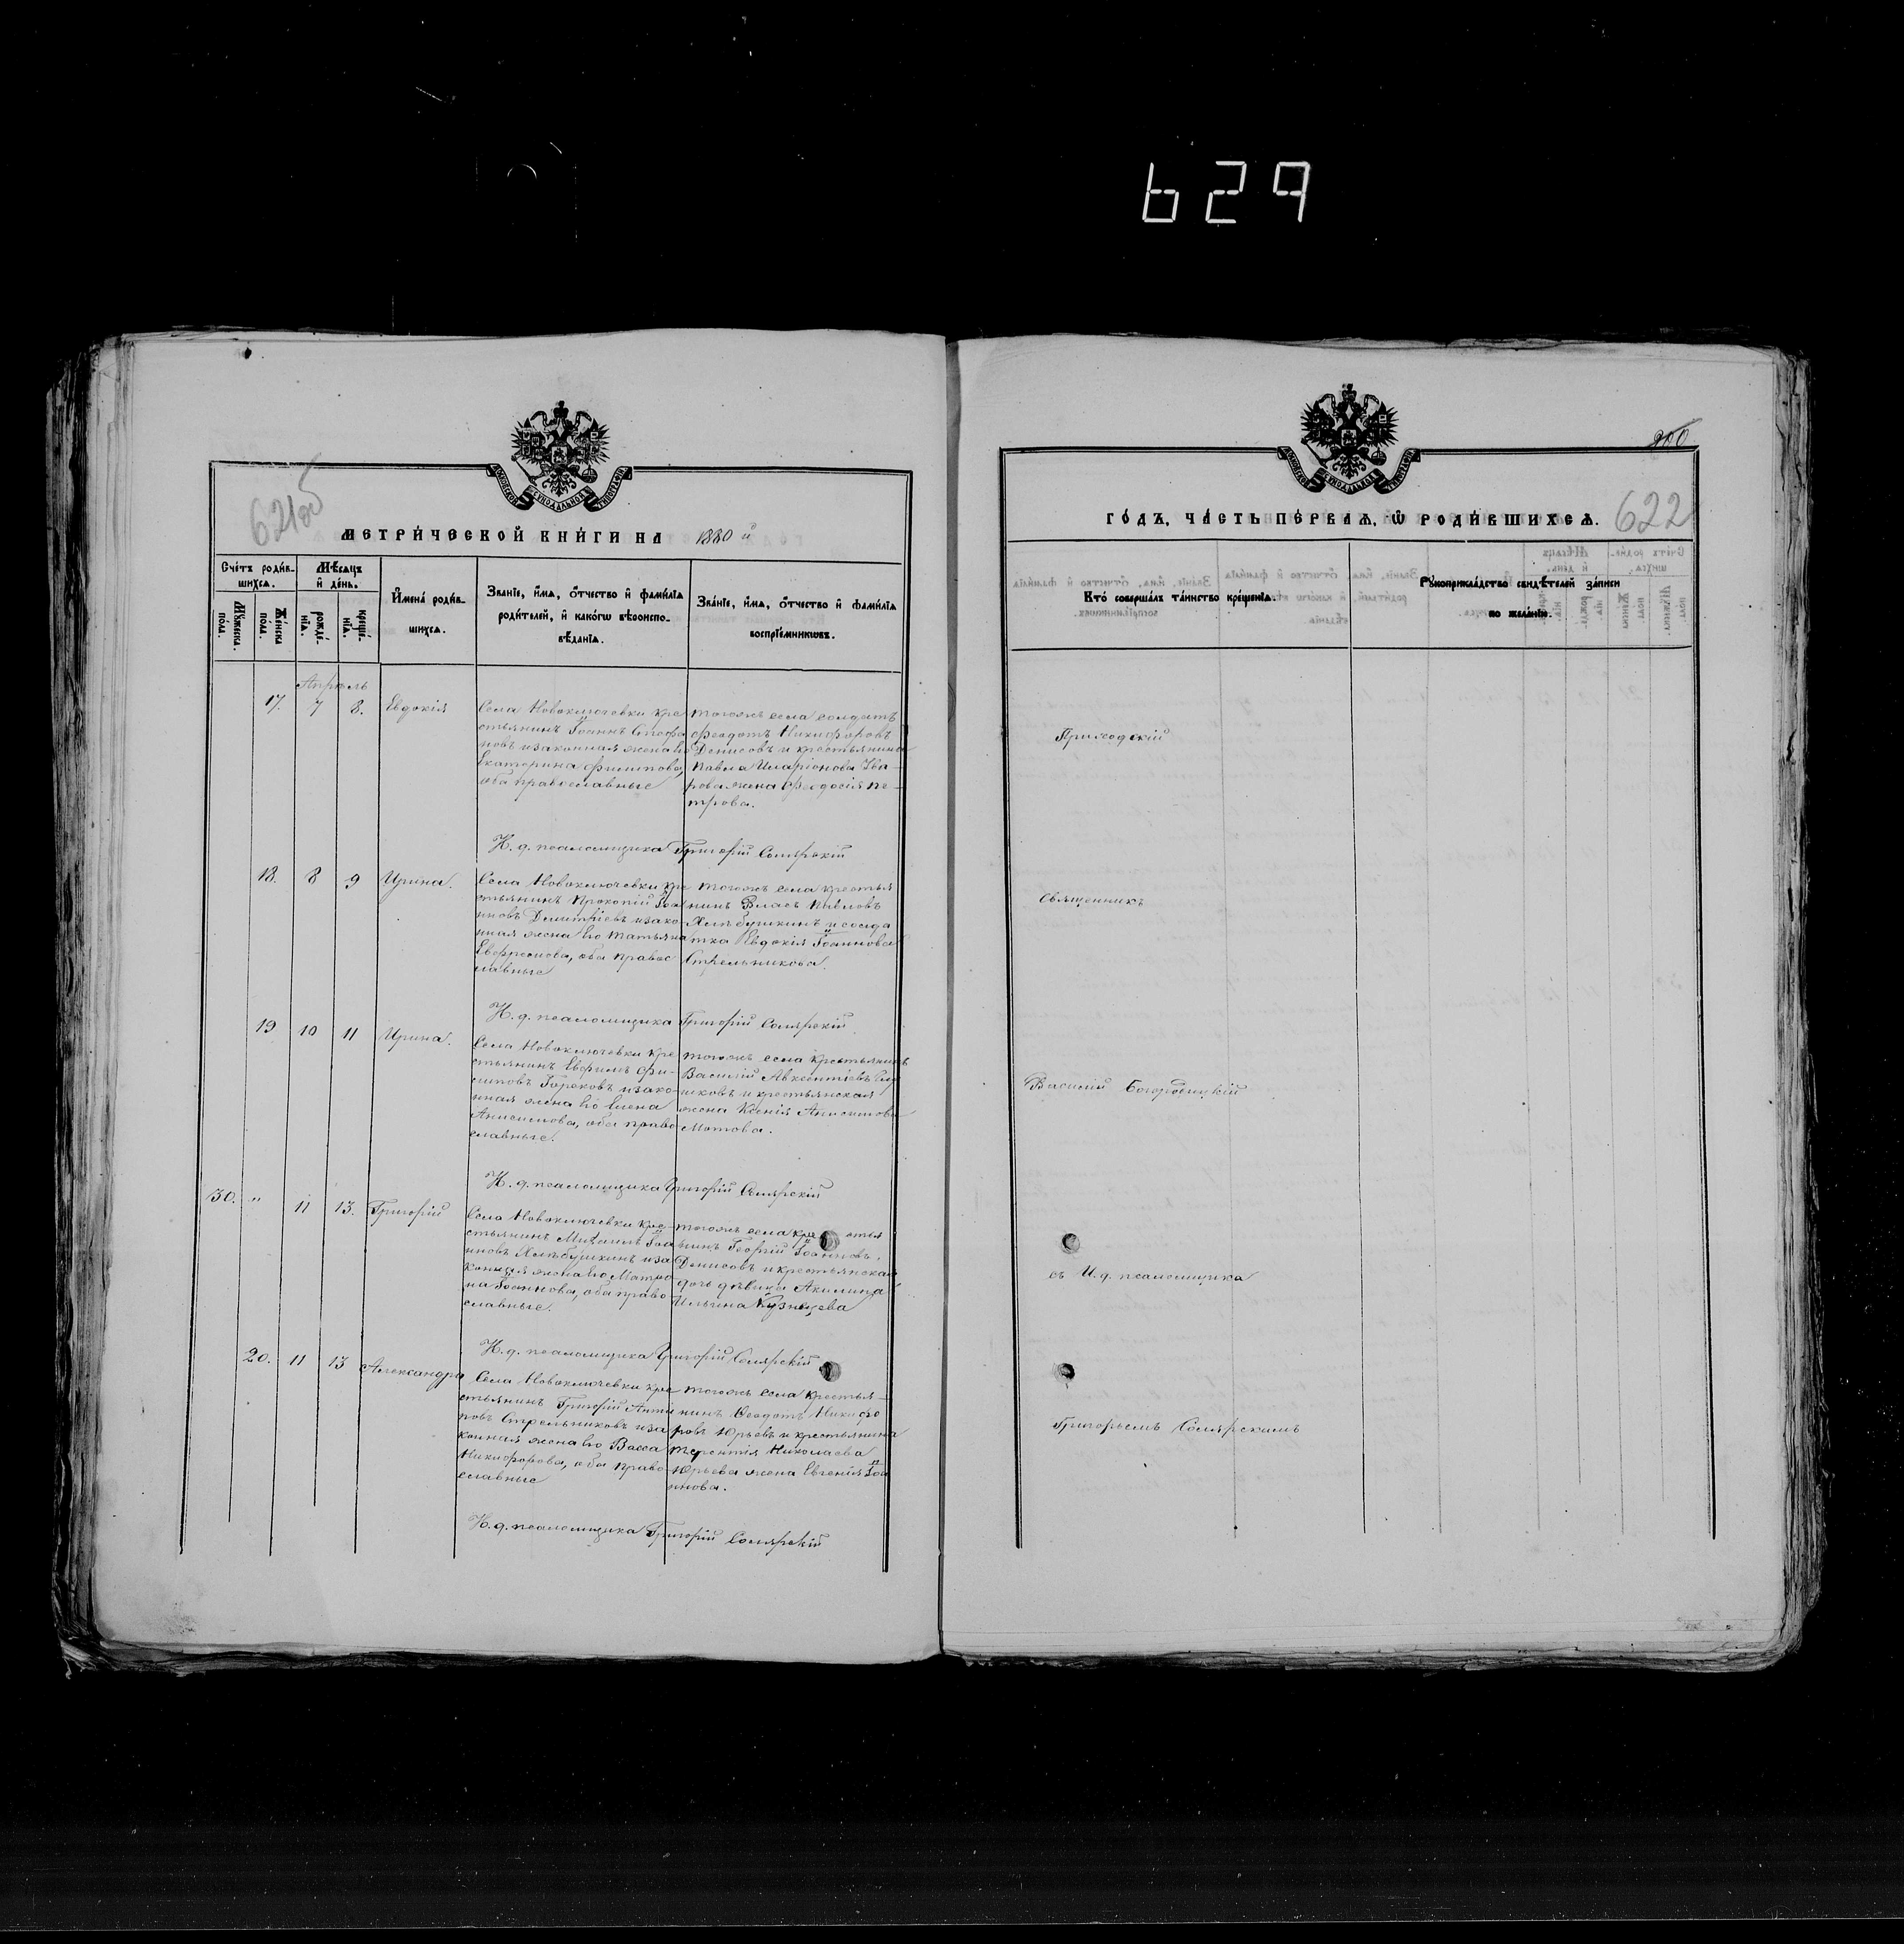 629
621об
МЕТРИ́ЧЕСКОЙ КНИ́ГИ НА 1880 й
Сче́тъ роди́в-
шихсѧ.
Мѣ́сѧцъ
и҆ де́нь.
Мꙋ́жеска
по́ла.
Же́нска
по́ла.
рожде́-
нїѧ.
креще́-
нїѧ.
И҆мена̀ роди́в-
шихсѧ.
Зва́нїе, и҆́мѧ, о҆́тчество и҆ фами́лїѧ
роди́телей, и҆ како́гѡ вѣроиспо-
вѣ́данїѧ.
Зва́нїе, и҆́мѧ, о҆́тчество и҆ фами́лїѧ
воспрїе́мникѡвъ.
Апрѣль
17. 7 8. Евдокія
Села Новоключевки кре
стьянинъ Іоаннъ Стефа
новъ изаконная жена его
Екатерина Филипова,
оба православные
тогожъ села солдатъ
Феодотъ Никифоровъ
Денисовъ и крестьянина
Павла Иларіонова Ува-
рова жена Феодосія Пе-
трова.
И. д. псаломщика Григорій Солярскій
18. 8 9 Ирина.
Села Новоключевки кре
стьянинъ Прокопій Іоа
нновъ Димитріевъ изако-
нная жена его Татьяна
Евфремова, оба правос
лавные
тогожъ села крестья
нинъ Власъ Павловъ
Хлѣбушкинъ и солда
тка Евдокія Іоаннова
Стрельникова.
И. д. псаломщика Григорій Солярскій
19 10 11 Ирина.
Села Новоключевки кре
стьянинъ Евфимъ Фи-
липовъ Горековъ изако-
нная жена его Елена
Анисимова, оба право
славные.
тогожъ села крестьянинъ
Василій Авксентіевъ
иковъ и крестьянская
жена Ксенія Анисимова
Мотова.
И. д. псаломщика Григорій Солярскій
30. " 11 13. Григорій
Села Новоключевки кре-
стьянинъ Михаилъ Іоа
нновъ Хлѣбушкинъ иза
конная жена его Матро
на Іоаннова, оба право-
славные.
тогожъ села кре стья
нинъ Георгій Іоанновъ
Денисовъ и крестьянская
дочь дѣвица Акилина
Ильина Кузнецова
И. д. псаломщика Григорій Солярскій
20. 11 13 Александра
Села Новоключевки кре
стьянинъ Григорій Анти
повъ Стрельниковъ иза
конная жена его Васса
Никифорова, оба право-
славные
тогожъ села крестья-
нинъ Феодотъ Никифо
ровъ Юрьевъ и крестьянина
Терентія Николаева
Юрьева жена Евгенія Іоа
ннова.
И. д. псаломщика Григорій Солярскій
622
ГО́ДЪ, ЧА́СТЬ ПЕ́РВАѦ, Ѡ҆ РОДИ́ВШИХСѦ.
Кто̀ соверша́лъ та́инство креще́нїѧ.
Рꙋкоприкла́дство свидѣ́телей за́писи
по жела́нїю.
Приходскій
Священникъ
Василій Богородицкій
съ И. д. псаломщика
Григорьемъ Солярскимъ